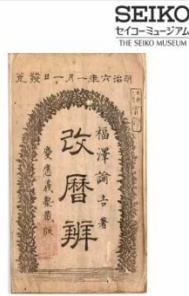 SEIKO
セイコーミュージアム
THE SEIKO MUSEUM
明治六年一月一日發兌
福澤諭吉著
改暦辨
慶應義塾蔵版